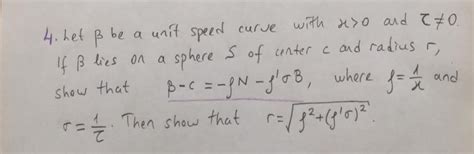 4. Let β be a unit speed curve with ϰ>0 and τ≠0.
If β lies on a sphere S of center c and radius r,
show that β-c = -ρN-ρ'σB, where ρ=1/ϰ and
σ=1/τ. Then show that r=√(ρ²+(ρ'σ)²).